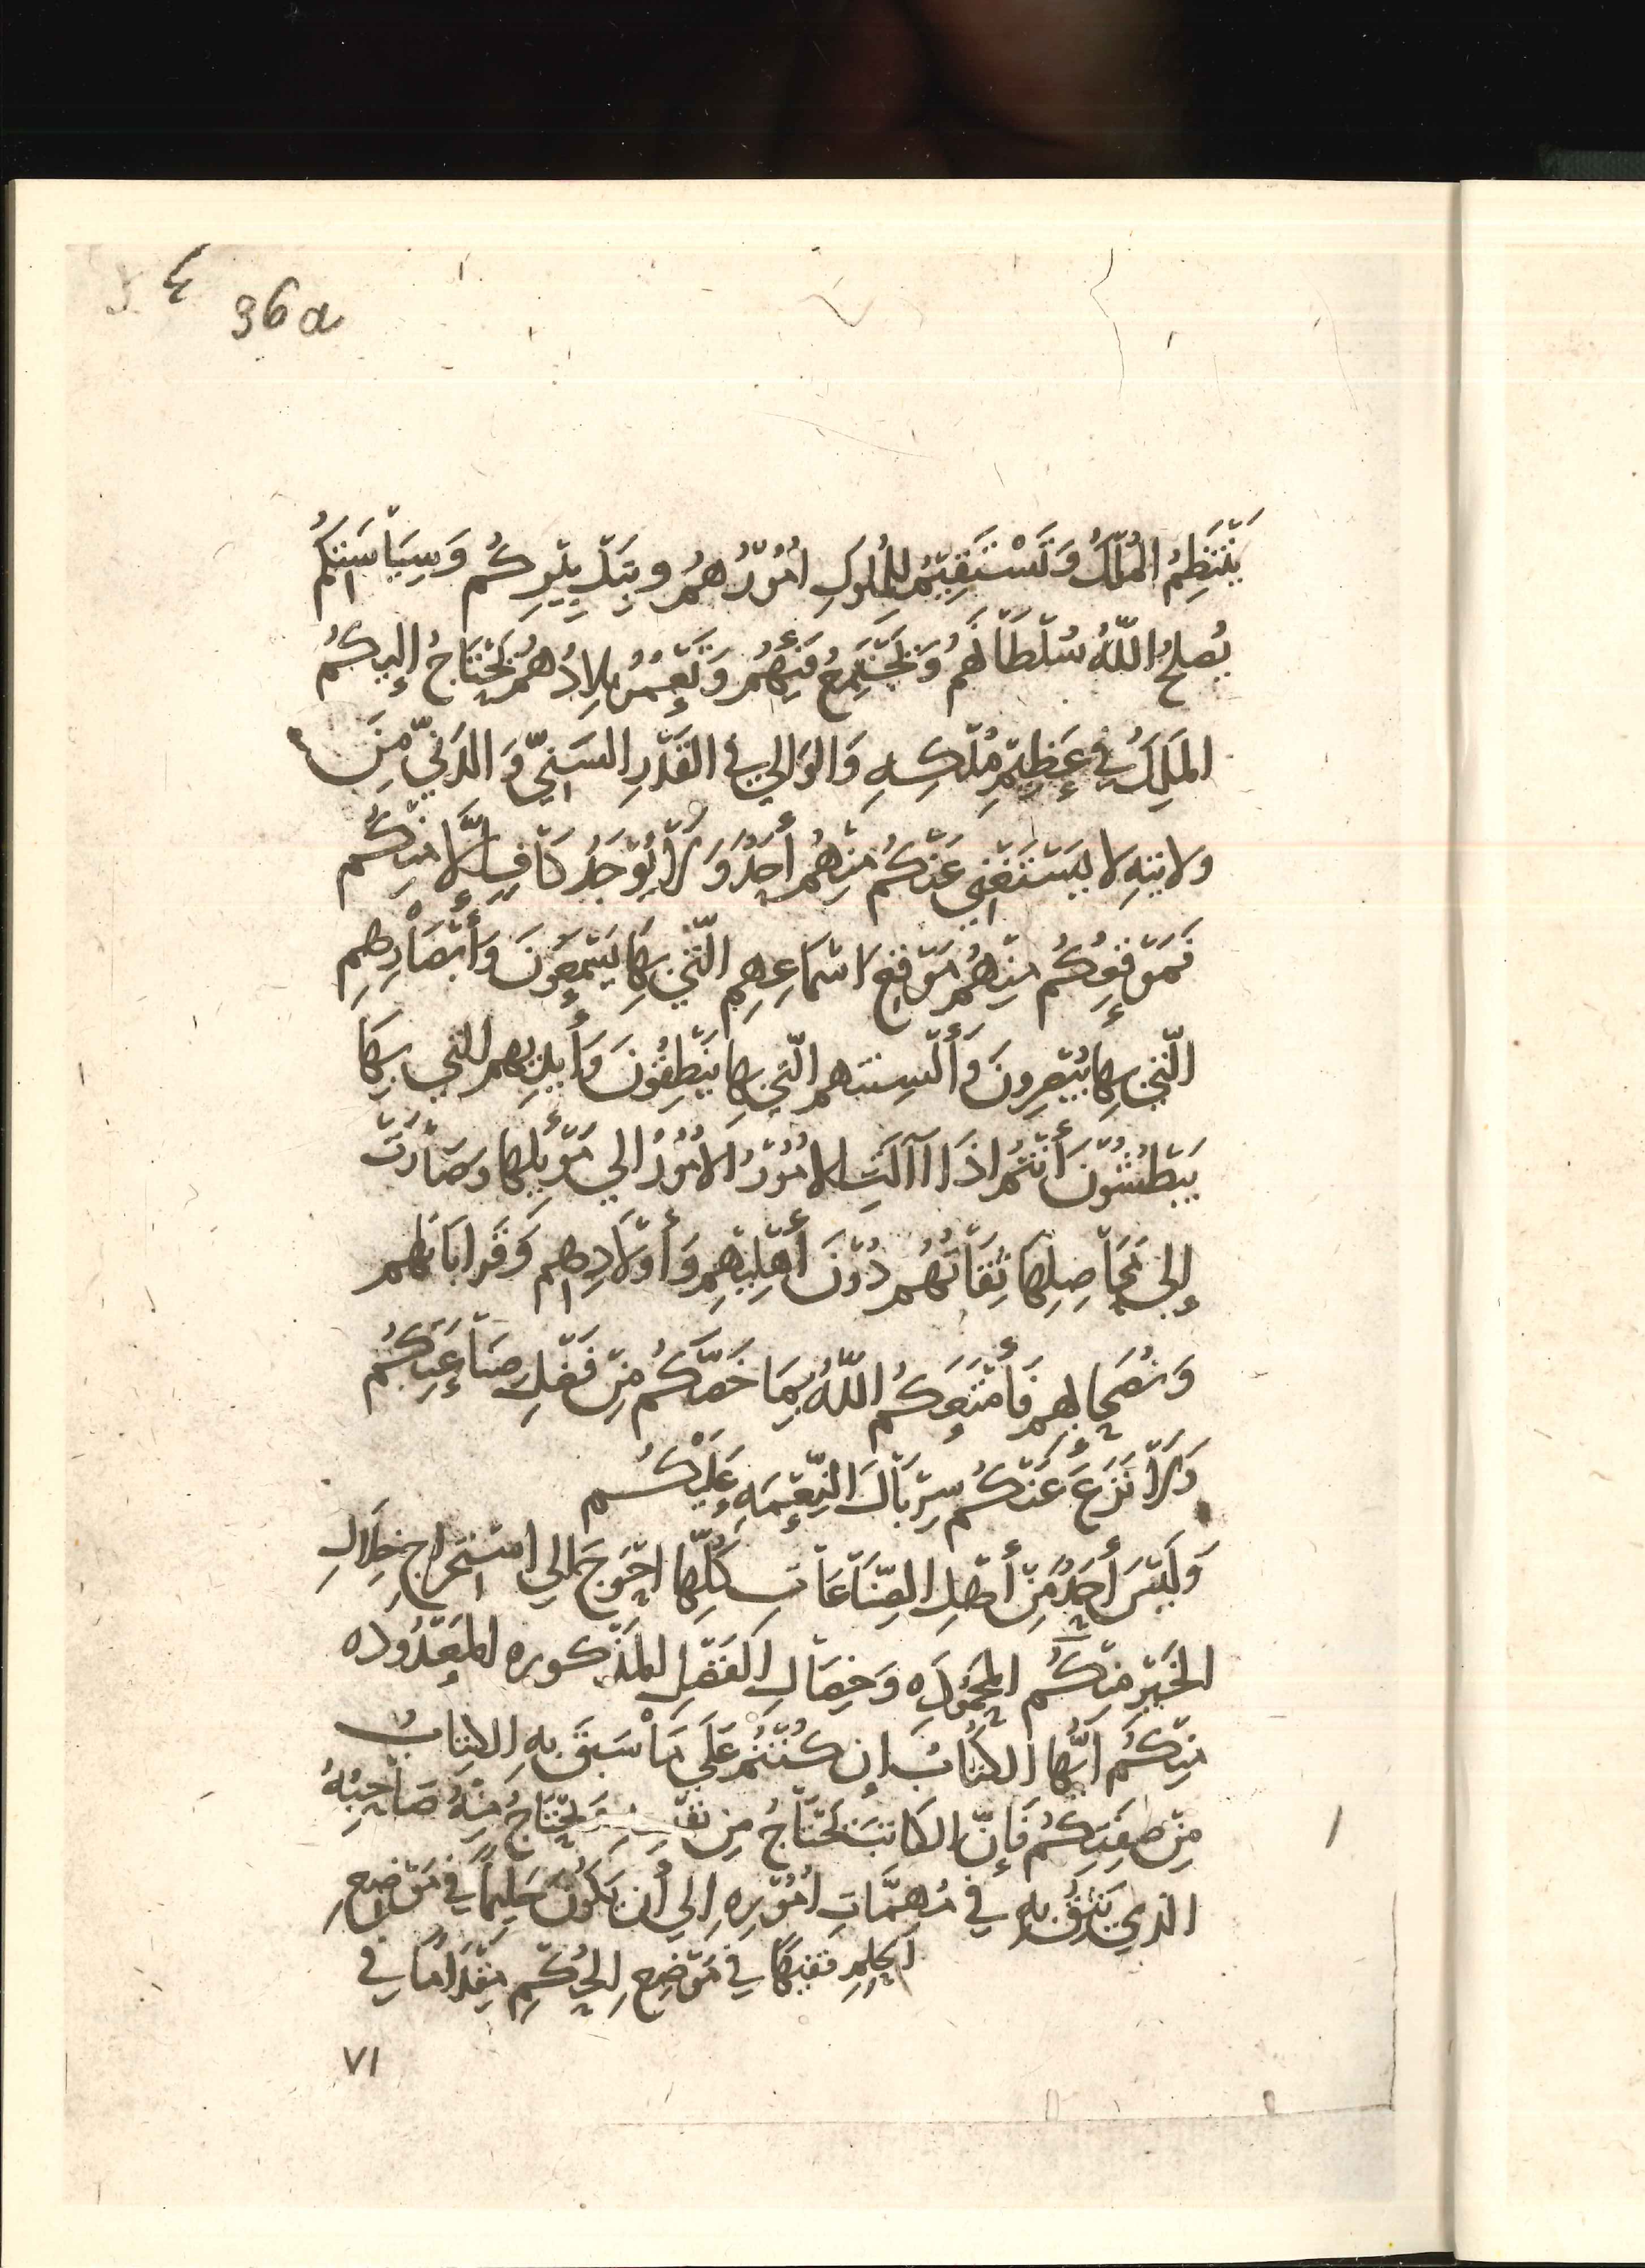 36a
يَنْتَظِمُ المُلْكُ وَتَسْتَقِيْمُ لِلْمُلُوكِ امُوْرُهُمْ وبِتَدْبِيْرِكُم وَسِيَاْسَتِكُم
يُصلِحُ اللّهُ سُلْطَاْنَهُم وَيَجْتَمِعُ فَيْئُهُمْ وَتَعْمُرُ بِلادُهُمْ يَحْتَاجُ إليكُم
المَلِكُ فِي عَظِيْمِ مُلْكِهِ وَالوَالِي فِي القَدْرِ السَنِيّ وَالدَنِيّ مِنَ
ولايتِهِ لا يَسْتَغْنِي عَنْكُم مِنْهُم أَحَدٌ وَلَاْ يُوْجَدُ كَاْفٍ إِلَّا مِنْكُم
فَمَوْقِعُكُم مِنْهُمْ مَوْقِعَ اسْمَاعِهِم الّتِي بِهَا يَسْمَعُوْنَ وَأَبْصَاْرِهِم
الّتِي بِهَا يُبْصِرونَ وَأَلْسِنَتهم الّتِي بِهَا يَنْطِقُوْنَ وَأَيدِيهم التي بِهَا
يَبْطُشُوْنَ أَنْتُمْ اذَا آلَتِ الامُوْرُ الامُوْرُ الي مَوْئِلِهَا وَصَاْرَتْ
إلى مَحَاْصِلِهَا ثِقَاْتُهُم دُوْنَ أَهْلِيْهِمْ وَأَوْلَادِهِم وَقَرَابَاتِهم
وَنُصَحَايهم فَأَمْتَعَكُم اللّهُ بِمَا خَصَّكُم مِنْ فَضْلِ صِنَاْعَتِكُم
وَلَاْ نَزَعَ عَنْكُم سِرْبَاْلَ النِّعْمَهِ عَلَيْكُم
وَلَيْسَ أَحَدٌ مِنْ أَهْلِ الصِّنَاْعَاْتِ كُلِّهَا احْوَجَ الي اسْتخراج خِلَالِ
الخَيْرِ مِنْكُم المَحْمُوْدَه وَخِصَالِ الفَضْلِ المَذْكوره المَعْدُوده
مِنْكُم أَيُّهَا الكُتَّابُ إن كُنْتُمْ عَلَي مَاْ سَبَقَ بِهِ الكِتَابُ
مِنْ صِفَتِكُم فَإِنَّ الكَاتِبَ يَحْتَاْجُ مِن وَيَحْتَاجُ مِنْهُ صَاْحِبُهُ
الذي يَثِقُ بِهِ فِي مُهِمَّاتِ امُوْرِهِ إلي أَن يَكُوْنَ حَلِيماً فِي مَوْضِعِ
الحِلْمِ فقيهًا فِي مَوْضِعِ الحُكْمِ مِقْدَامًا فِي
٧١